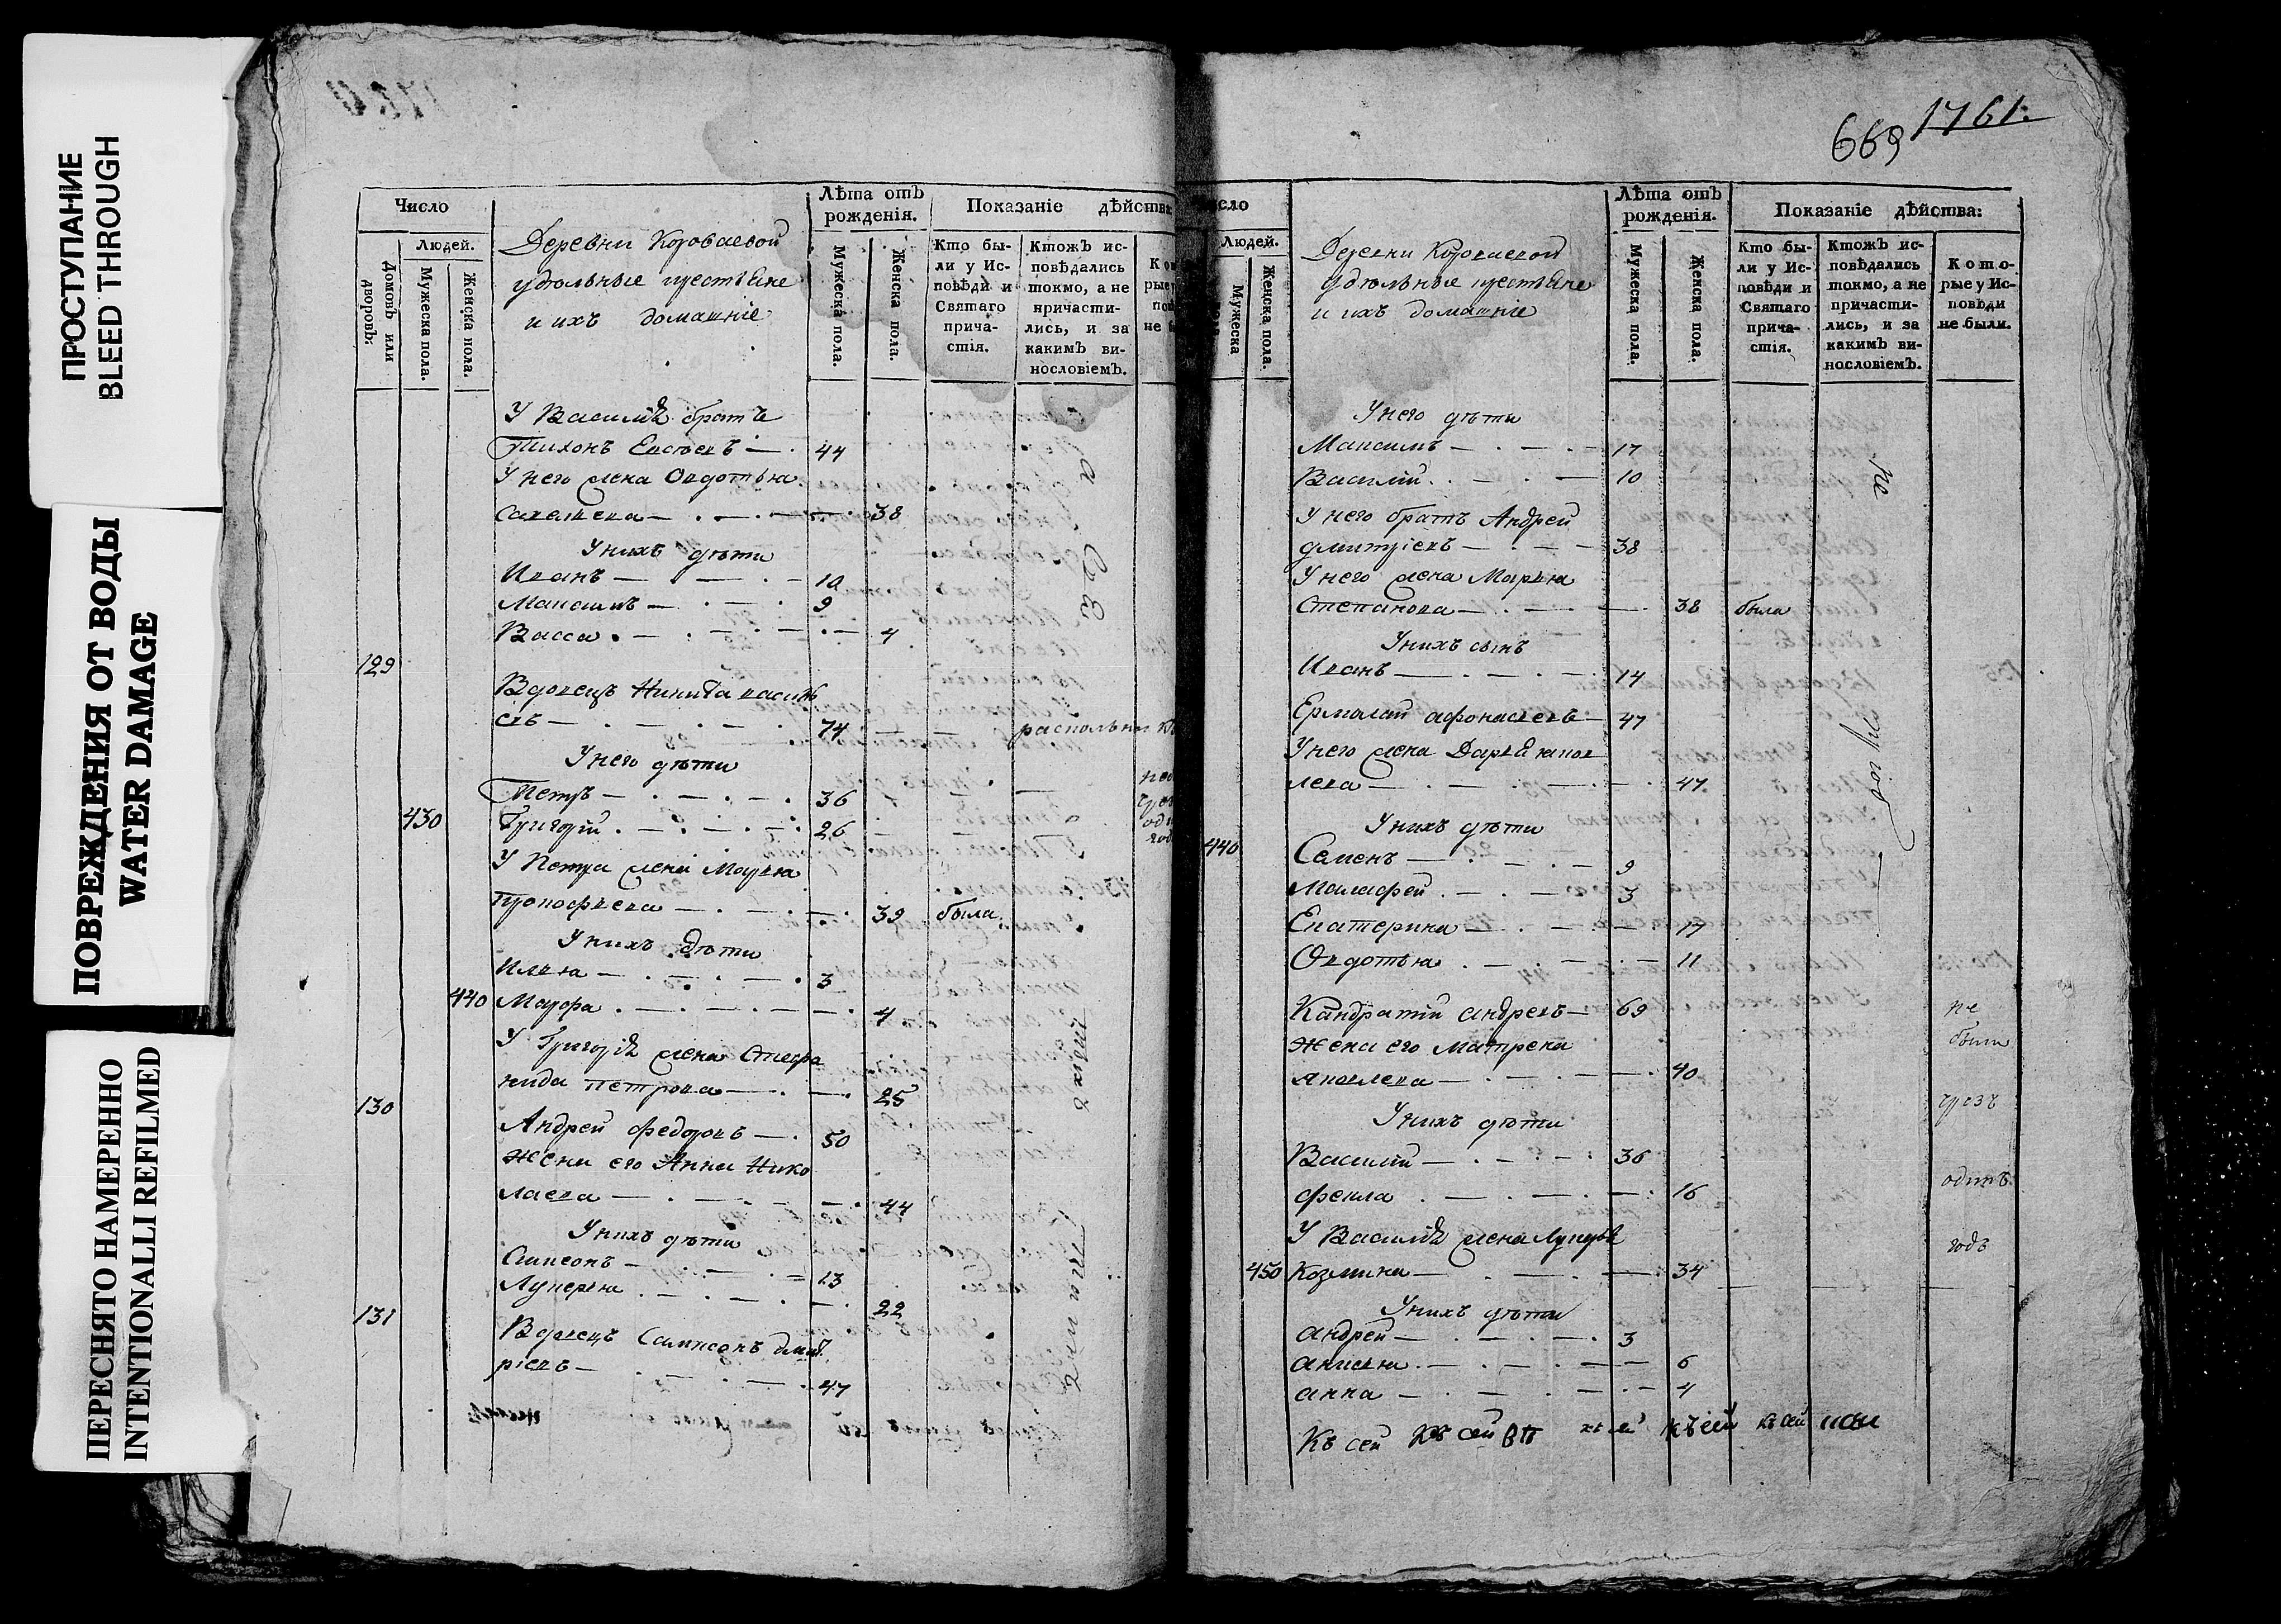 ПРОСТУПАНИЕ
BLEED THROUGH
ПОВРЕЖДЕНИЯ ОТ ВОДЫ
WATER DAMAGE
ПЕРЕСНЯТО НАМЕРЕННО
INTENTIONALLI REFILMED
Число
Людей.
Домовъ или дворовъ.
Мужеска пола.
Женска пола.
Деревни Короваевой
удѣльные крестьяне
и ихъ домашніе
Лѣта отъ рожденія.
Мужеска пола.
Женска пола.
Показаніе дѣйства
Кто были у Исповѣди и Святаго причастія.
Ктожъ исповѣдались токмо, а не причастились, и за какимъ винословіемъ.
У Василья братъ
Тихонъ Евсѣевъ 44
У него жена Овдотья
Савельева 38
У нихъ дѣти
Иванъ 10
Максимъ 9
Васса 4
129
Вдовецъ Никита Василь
евъ 74 раскольникъ
У него дѣти
Петръ 36
430 Григорій 26
У Петра жена Марья
Прокофьева 39 была
У нихъ дѣти
Илья 3
440 Марфа 4
У Григорья жена Стефа
нида Петрова 25
130
Андрей Федоровъ 50
Жена его Анна Нико
лаева 44
У нихъ дѣти
Самсонъ 13
Лукерья 22
131
Вдовецъ Самсонъ Дмит
ріевъ 47
669 1761.
Людей.
Мужеска
Женска пола.
Деревни Короваевой
удѣльные крестьяне
и ихъ домашніе
Лѣта отъ рожденія.
Мужеска пола.
Женска пола.
Показаніе дѣйства:
Кто были у Исповѣди и Святаго причастія.
Ктожъ исповѣдались токмо, а не причастились, и за какимъ винословіемъ.
Которые у Исповѣди не были.
У него дѣти
Максимъ 17
Василій 10
У него братъ Андрей
Дмитріевъ 38
У него жена Марья
Степанова 38 была
У нихъ сынъ
Иванъ 14
Ермолай Афонасьевъ 47
У него жена Дарья Яков
лева 47
У нихъ дѣти
440 Семенъ 9
Малафей 3
Екатерина 17
Овдотья 11
Кандратій Андреевъ 69 не
Жена его Матрена были
Яковлева 40
У нихъ дѣти чрезъ
Василій 36
Фекла 16 одинъ
У Василья жена Лукерья годъ
450 Козмина 34
У нихъ дѣти
Андрей 3
Анисья 6
Анна 4
Къ сей